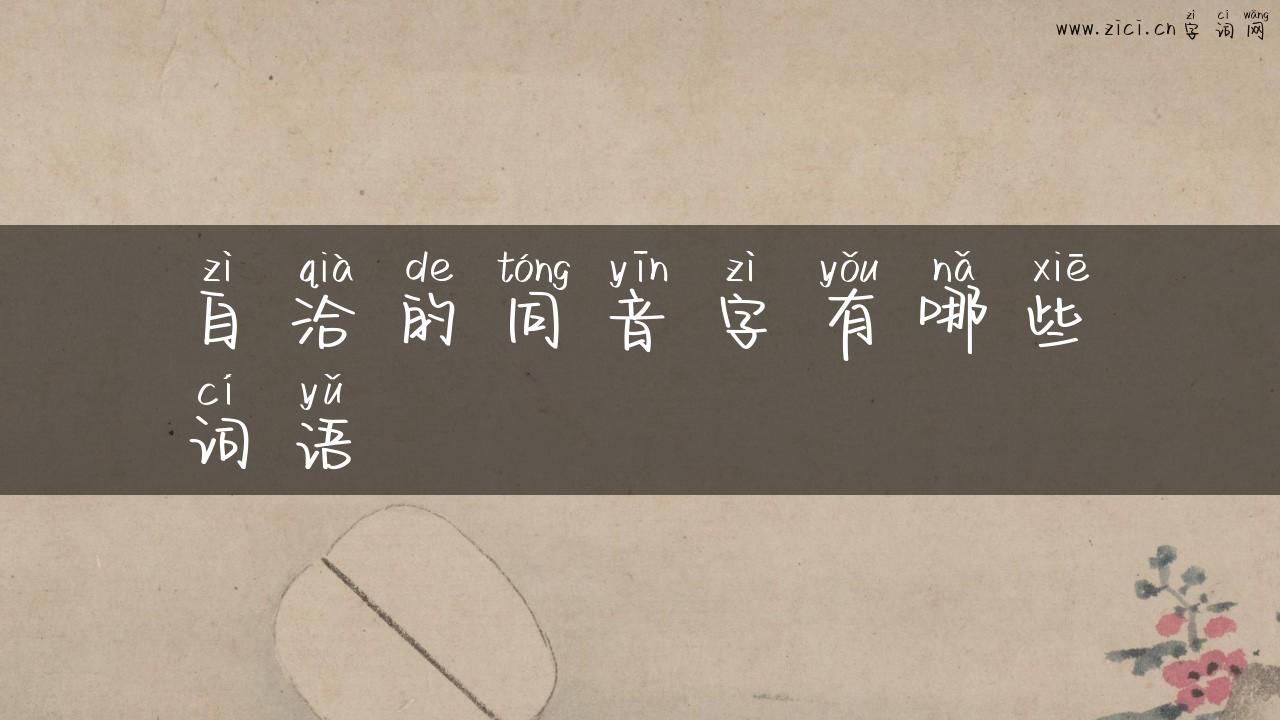 zì cí wǎng
www.zici.cn 字词网
zì qià de tóng yīn zì yǒu nǎ xiē
自洽的同音字有哪些
cí yǔ
词语